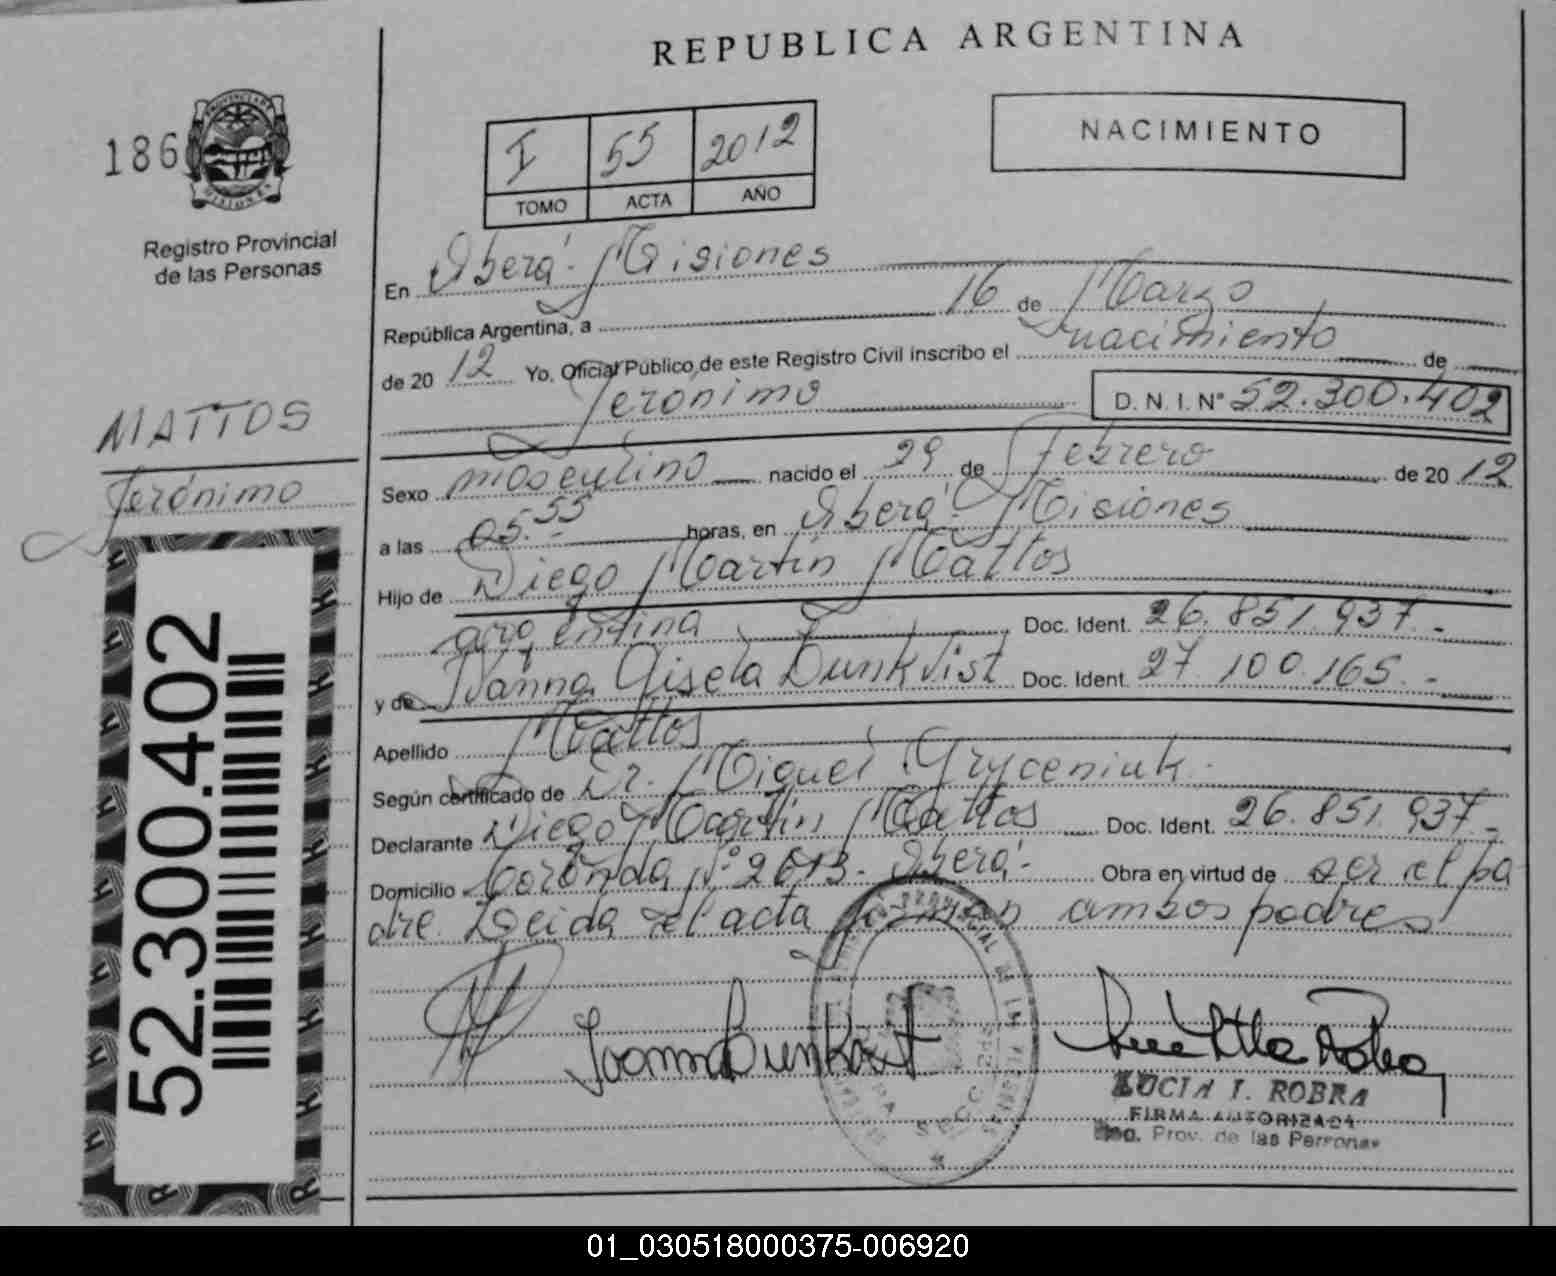 REPUBLICA ARGENTINA
186
PROVINCIA DE
MISIONES
Registro Provincial
de las Personas
I 55 2012
TOMO ACTA AÑO
NACIMIENTO
En Oberá - Misiones
República Argentina, a 16 de Marzo
de 20 12 Yo, Oficial Público de este Registro Civil inscribo el nacimiento de
Jerónimo D. N. I. N° 52.300.402
MATTOS
Jerónimo
Sexo masculino nacido el 29 de Febrero de 20 12
a las 05.55 horas, en Oberá - Misiones
Hijo de Diego Martín Mattos
argentina Doc. Ident. 26.851.937.-
y de Ivanna Gisela Dunkvist Doc. Ident. 27.100.165.-
Apellido Mattos
Según certificado de Dr. Miguel Gryceniuk.
Declarante Diego Martín Mattos Doc. Ident. 26.851.937.-
Domicilio Coronda N° 2613- Oberá- Obra en virtud de ser el pa
dre. Leida el acta firman ambos padres
52.300.402
Ivanna Dunkvist
LUCIA I. ROBRA
FIRMA AUTORIZADA
Reg. Prov. de las Personas
01_030518000375-006920